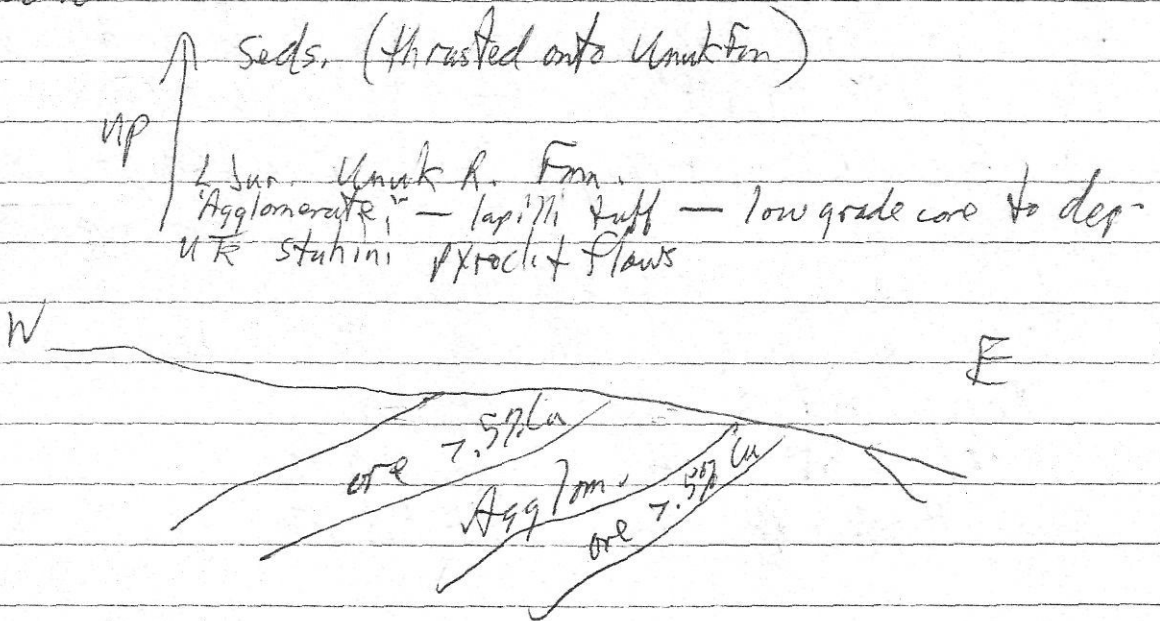 Seds. (thrusted onto Unuk Fm)
up
L Jur. Unuk R. Fmn.
"Agglomerate," — lapilli tuff — low grade core to dep-
uTR stuhini pyroclst flows
W
E
ore >.5% Cu
Agglom.
ore >.5% Cu